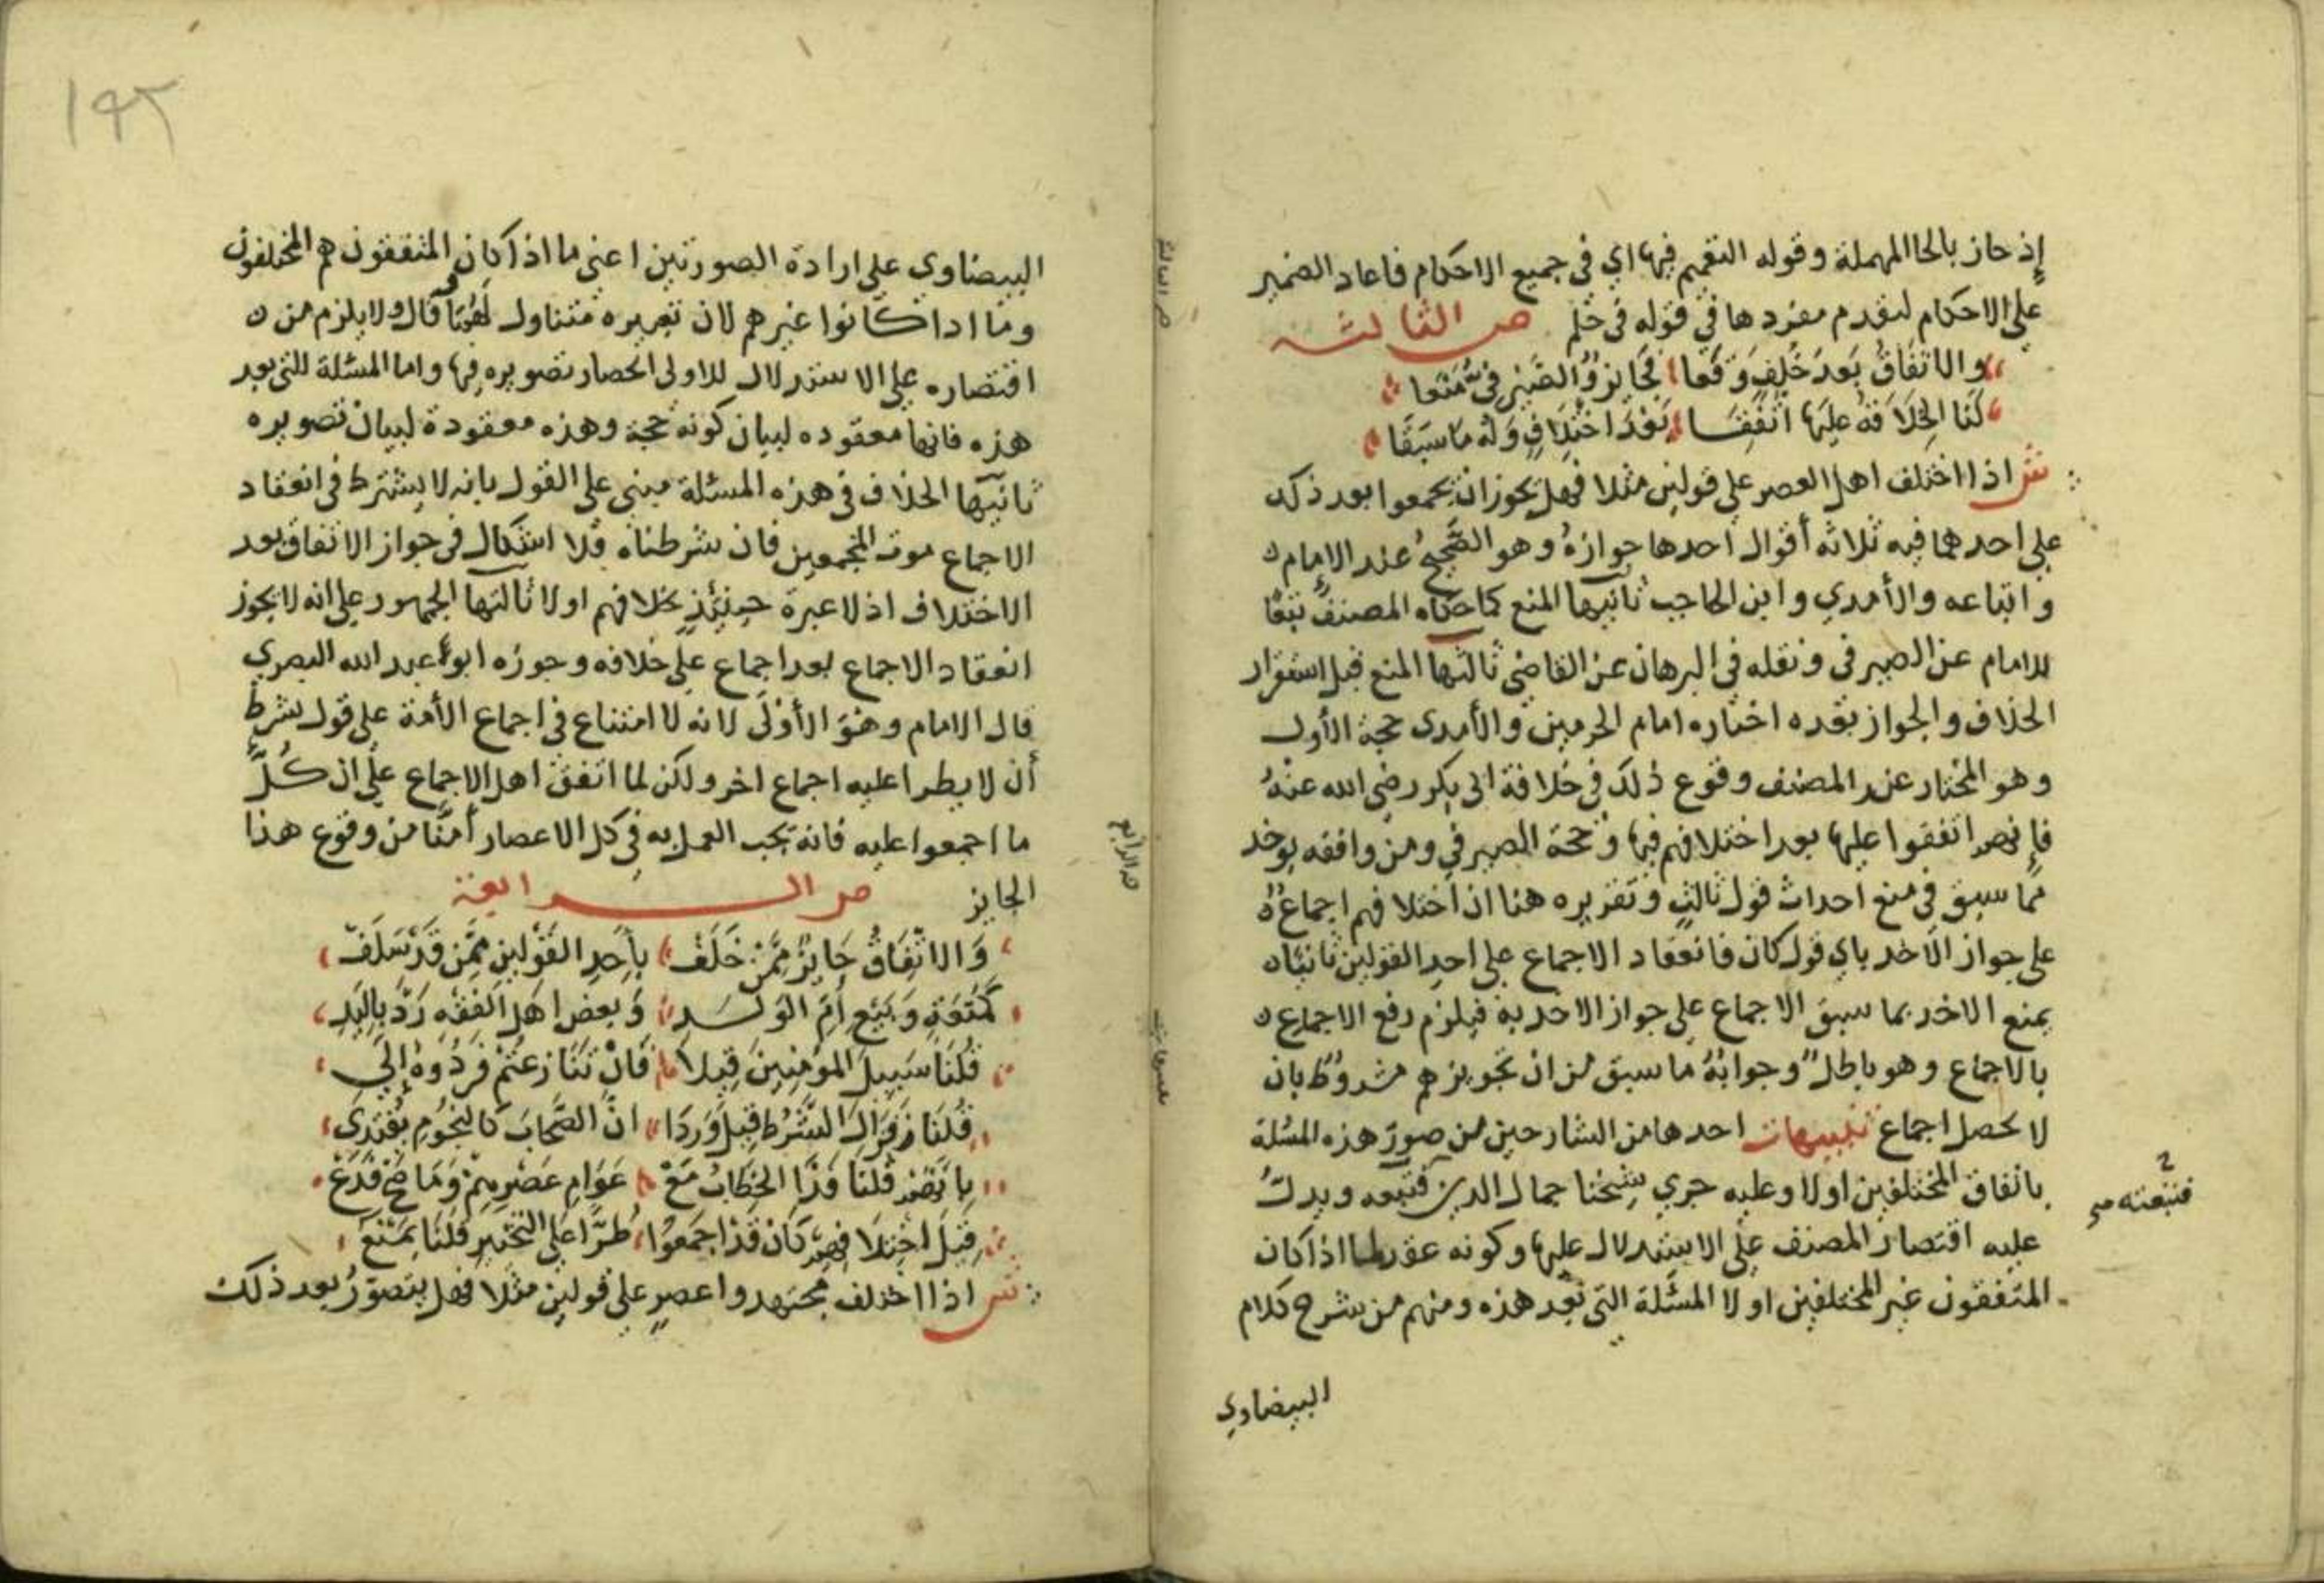 إذ حاز بالحا المهملة وقوله التعميم فيها اي في جميع الاحكام فاعاد الضمير
على الاحكام لتقدم مفردها في قوله في حكم ص الثالثة
والاتفاق بعد خلف وقعا فجايز والصيرفي منعا
لنا الخلافة عليها اتفقا بعد اختلاف وله ما سبقا
ش اذا اختلف اهل العصر على قولين مثلا فهل يجوز ان يجمعوا بعد ذلك
على احدهما فيه ثلاثة أقوال احدها جوازه وهو الصحيح عند الإمام
واتباعه والأمدي وابن الحاجب ثانيها المنع كما حكاه المصنف تبعًا
للامام عن الصيرفي ونقله في البرهان عن القاضي ثالثها المنع قبل استقرار
الخلاف والجواز بعده اختاره امام الحرمين والأمدى حجة الأول
وهو المختار عند المصنف وقوع ذلك في خلافة ابي بكر رضي الله عنه
فإنهم اتفقوا عليها بعد اختلافهم فيها وحجة الصيرفي ومن وافقه يوخد
مما سبق في منع احداث قول ثالث وتقريره هنا ان اختلافهم اجماع
على جواز الاخد باي قول كان فانعقاد الاجماع على احد القولين ثانيا
يمنع الاخد بما سبق الاجماع على جواز الاخد به فيلزم رفع الاجماع
بالاجماع وهو باطل وجوابه ما سبق من ان تجويزهم مشروط بان
لا يحصل اجماع تنبيهات احدها من الشارحين من صور هذه المسئلة
باتفاق المختلفين اولا وعليه جري شيخنا جمال الدين فتبعه ويدل
فتبعته
عليه اقتصار المصنف على الاستدلال عليها وكونه عقد لما اذا كان
المتفقون غير المختلفين اولا المسئلة التي بعد هذه ومنهم من شرح كلام
البيضاوي
ص الثالثة
ص الرابع
تنبيهات
١٩٢
البيضاوي على ارادة الصورتين اعني ما اذا كان المتفقون هم المختلفون
وما اذا كانوا غيرهم لان تعبيره متناول لهما قال ولا يلزم من
اقتصاره على الاستدلال للاولى انحصار تصويره فيها واما المسئلة التي بعد
هذه فانها معقوده لبيان كونه حجة وهذه معقودة لبيان تصويره
ثانيها الخلاف في هذه المسئلة مبني على القول بانه لا يشترط في انعقاد
الاجماع موت المجمعين فان شرطناه فلا اشكال في جواز الاتفاق بعد
الاختلاف اذ لا عبرة حينئذ بخلافهم اولا ثالثها الجمهور على انه لا يجوز
انعقاد الاجماع بعد اجماع على خلافه وجوزه ابو عبد الله البصري
قال الامام وهو الأولى لانه لا امتناع في اجماع الأمة على قول بشرط
أن لا يطرا عليه اجماع اخر ولكن لما اتفق اهل الاجماع على ان كل
ما اجمعوا عليه فانه يجب العمل به في كل الاعصار أمنّا من وقوع هذا
الجايز ص الرابعة
والاتفاق جايز ممن خلف بأحد القولين ممن قد سلف
كمتعة وبيع أم الولد وبعض اهل الفقه رد باليد
قلنا سبيل المؤمنين قيلا فان تنازعتم فردوه إلى
قلنا فزال الشرط قيل وردا ان الصحاب كالنجوم يقتدي
بايهم قلنا وذا الخطاب مع عوام عصرهم وما صح فدع
قيل اختلافهم كان قد اجمعوا طرّا على التخيير قلنا يمنع
ش اذا اختلف مجتهدوا عصر على قولين مثلا فهل يتصور بعد ذلك